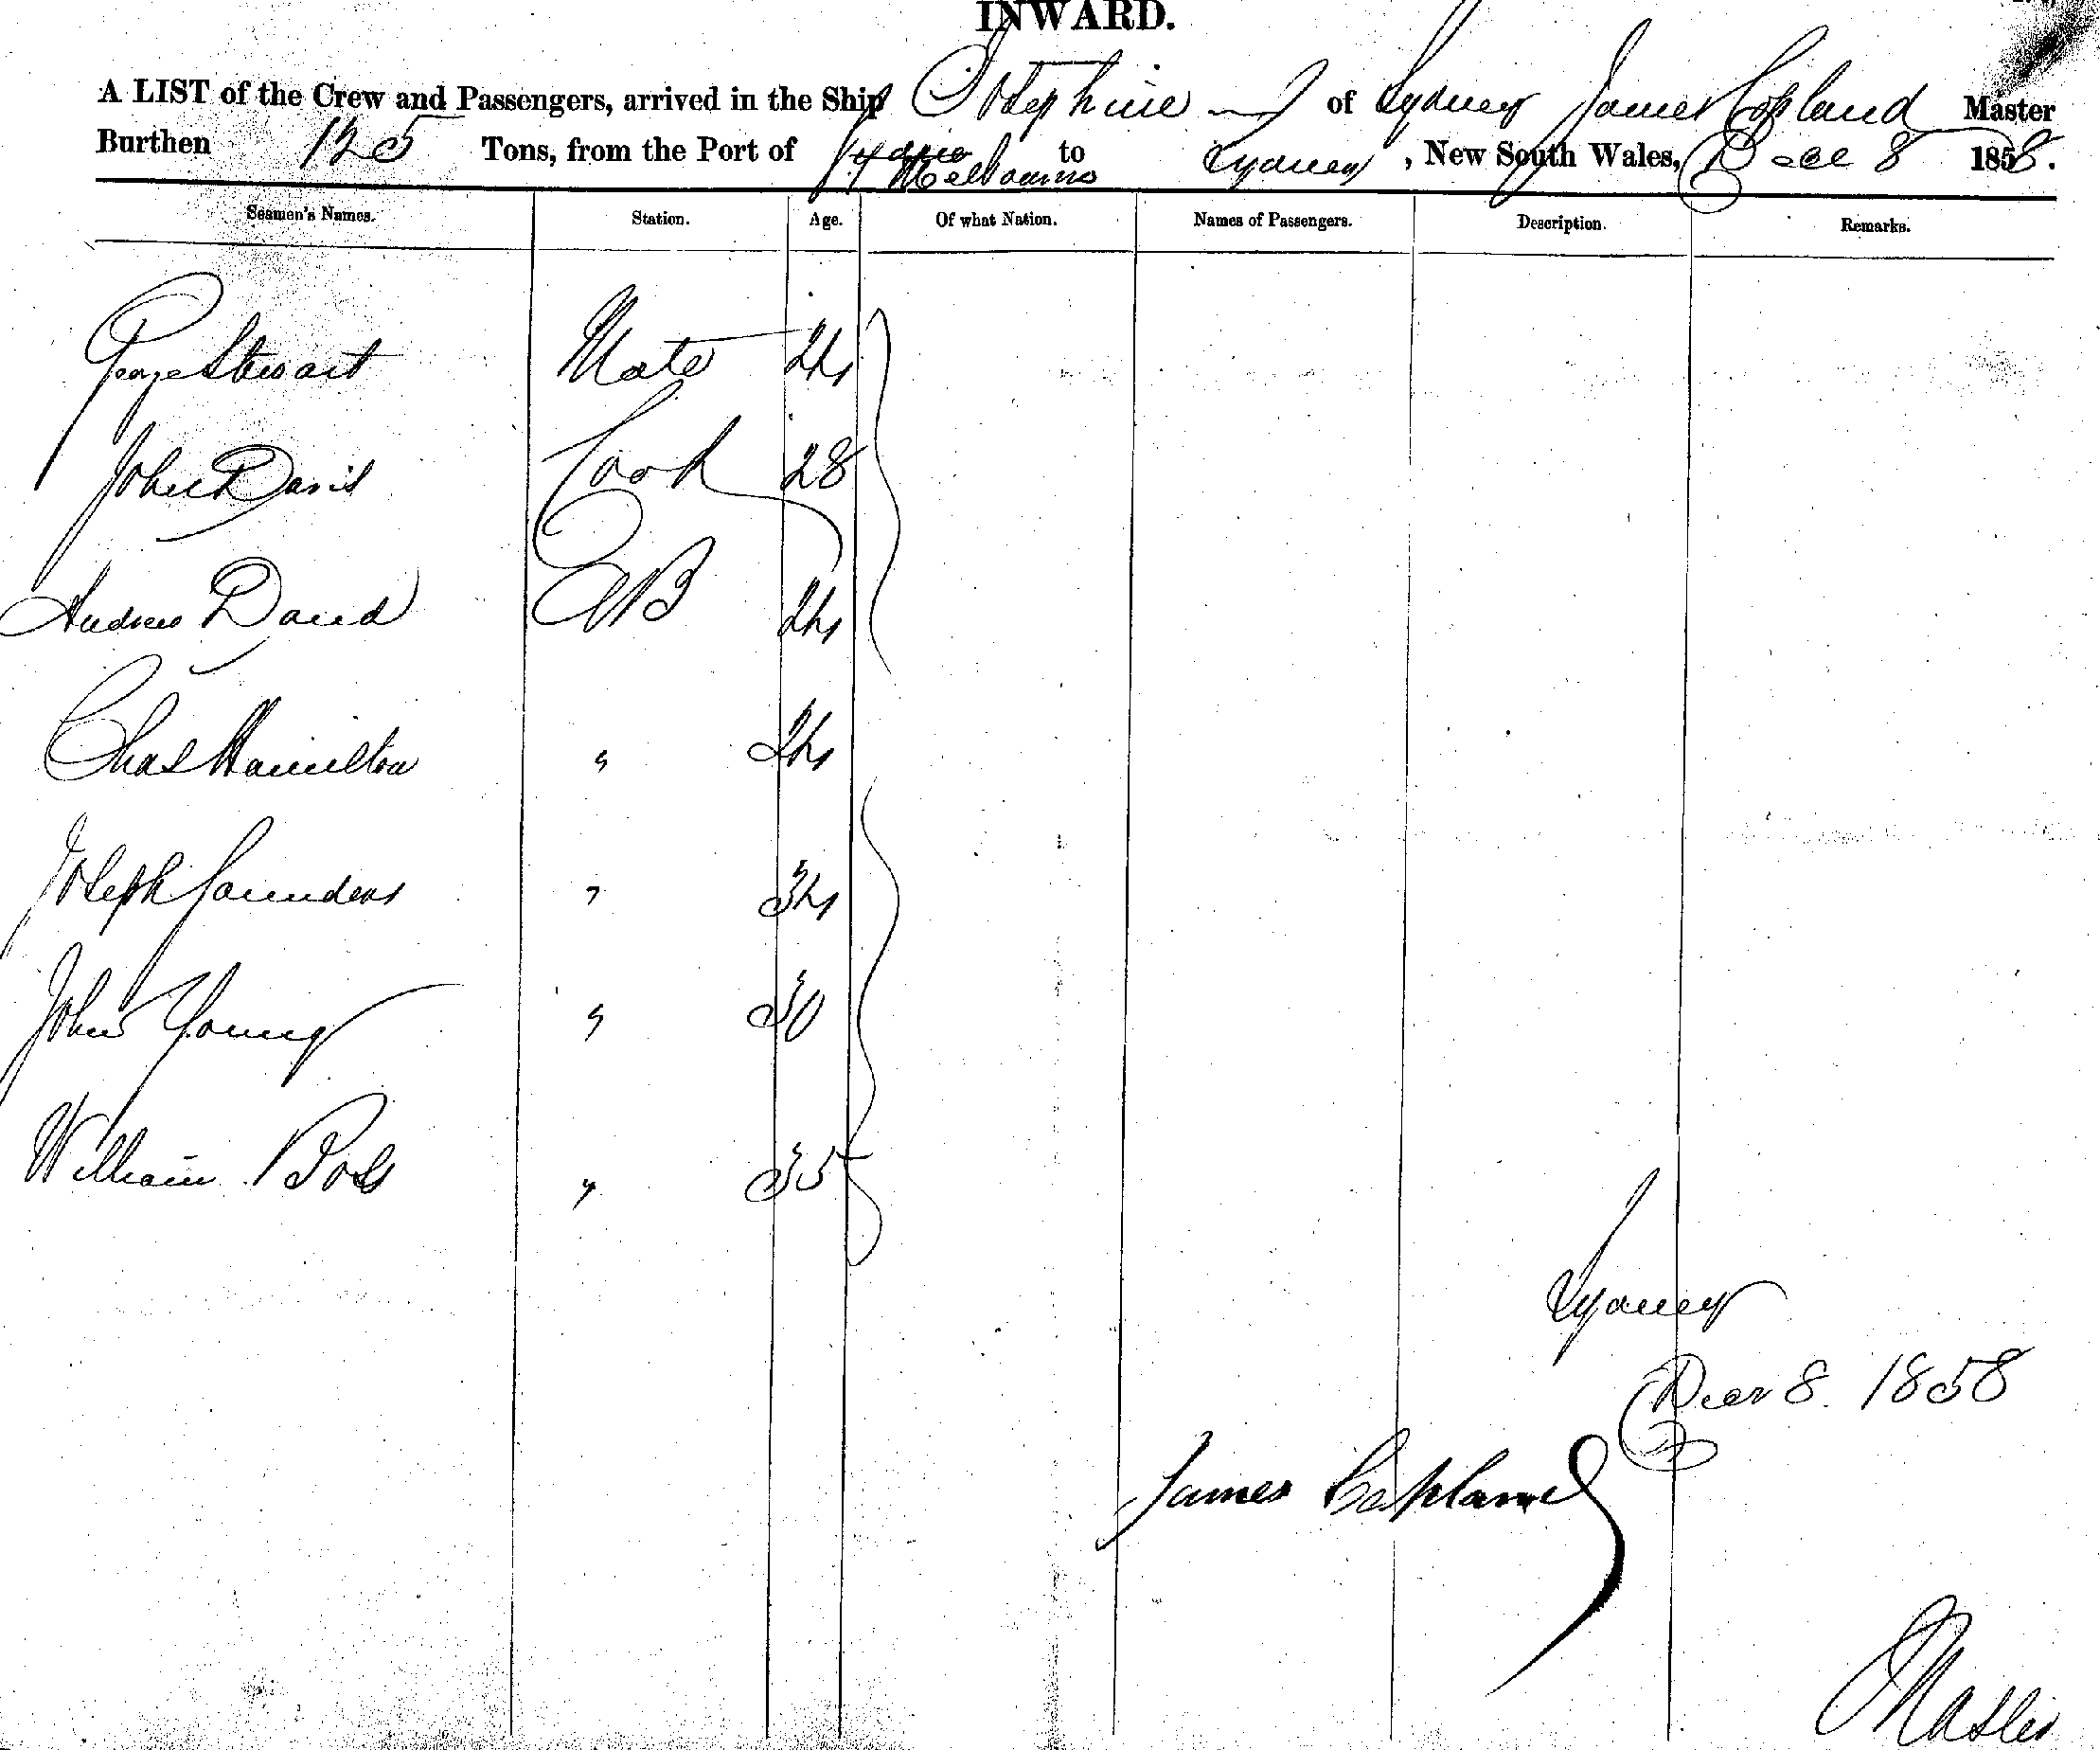 INWARD.
A LIST of the Crew and Passengers, arrived in the Ship Josephine of Sydney James Copland Master
Burthen 125 Tons, from the Port of Melbourne to Sydney, New South Wales, Dec 8 1858.
Seamen's Names. Station. Age. Of what Nation. Names of Passengers. Description. Remarks.
George Stewart Mate 24
John Davis Cook 28
Andrew David AB 24
Chas Hamilton " 24
Joseph Saunders " 34
John Young " 30
William " 35
Sydney
Decr 8. 1858
James Copland
Master